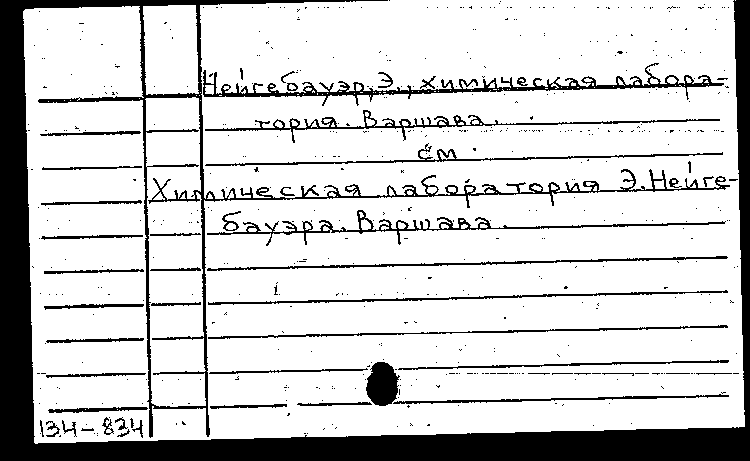 Нейгебауэр, Э., химическая лабора-
тория. Варшава.
см.
Химическая лаборатория Э. Нейге-
бауэра. Варшава.
134-834